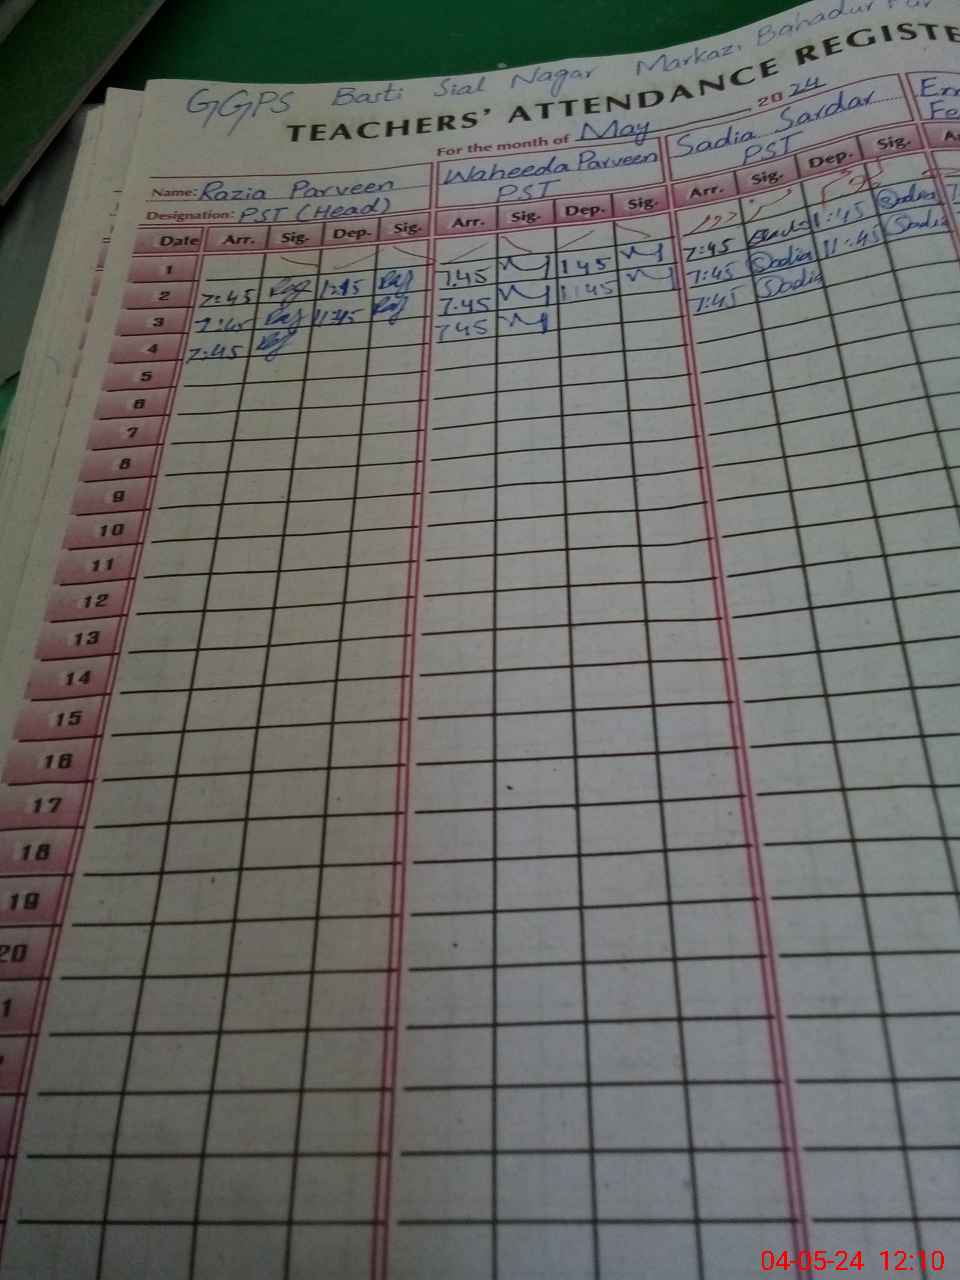 GGPS Basti Sial Nagar Markazi Bahadur Pur
TEACHERS' ATTENDANCE REGISTE
For the month of May 2024
Name: Razia Parveen Waheeda Parveen Sadia Sardar
Designation: PST (Head) PST PST Fe
Date Arr. Sig. Dep. Sig. Arr. Sig. Dep. Sig. Arr. Sig. Dep. Sig.
1
2 7:45 7:45 1:45 7:45 1:45 Sadia
3 7:45 11:45 7:45 11:45 7:45 Sadia 11:45 Sadia
4 7:45 7:45 7:45 Sadia
5
6
7
8
9
10
11
12
13
14
15
16
17
18
19
20
1
04-05-24 12:10